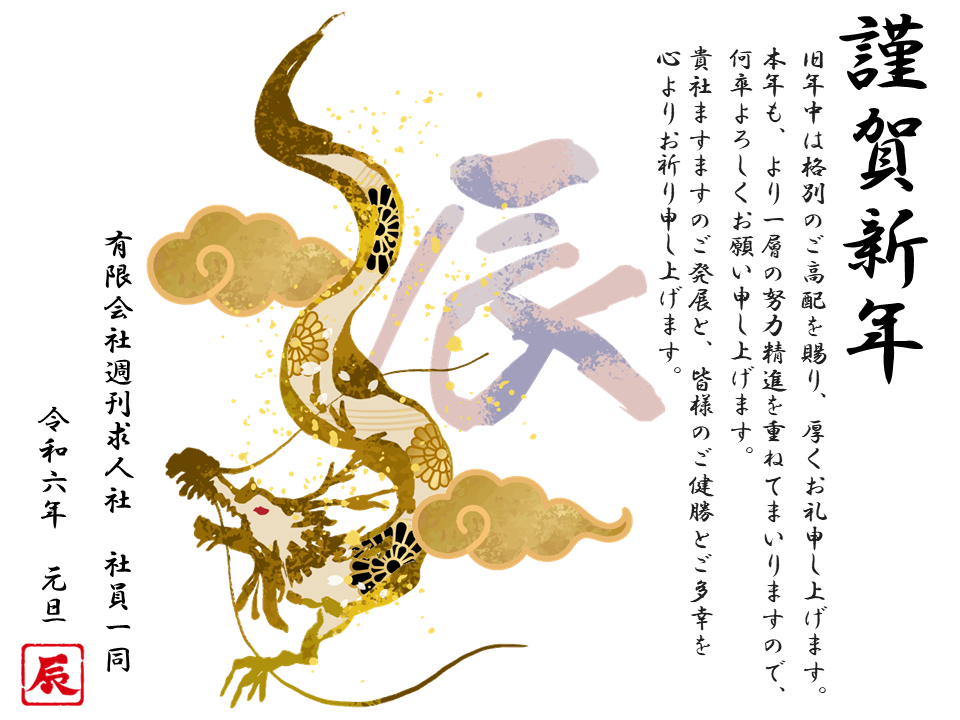 謹賀新年
旧年中は格別のご高配を賜り、厚くお礼申し上げます。
本年も、より一層の努力精進を重ねてまいりますので、
何卒よろしくお願い申し上げます。
貴社ますますのご発展と、皆様のご健勝とご多幸を
心よりお祈り申し上げます。
辰
有限会社週刊求人社　社員一同
令和六年　元旦
辰